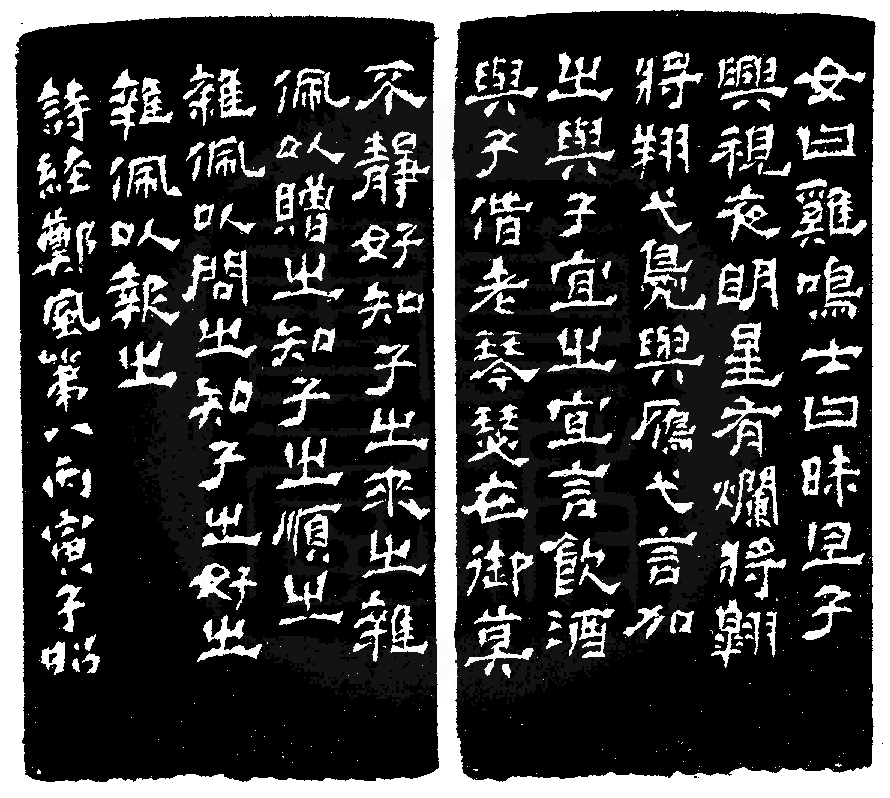 女曰雞鳴士曰昧旦子
興視夜明星有爛將翱
將翔弋鳧與鴈弋言加
之與子宜之宜言飲酒
與子偕老琴瑟在御莫
不靜好知子之來之雜
佩以贈之知子之順之
雜佩以問之知子之好之
雜佩以報之
詩経鄭風第八丙寅子昭